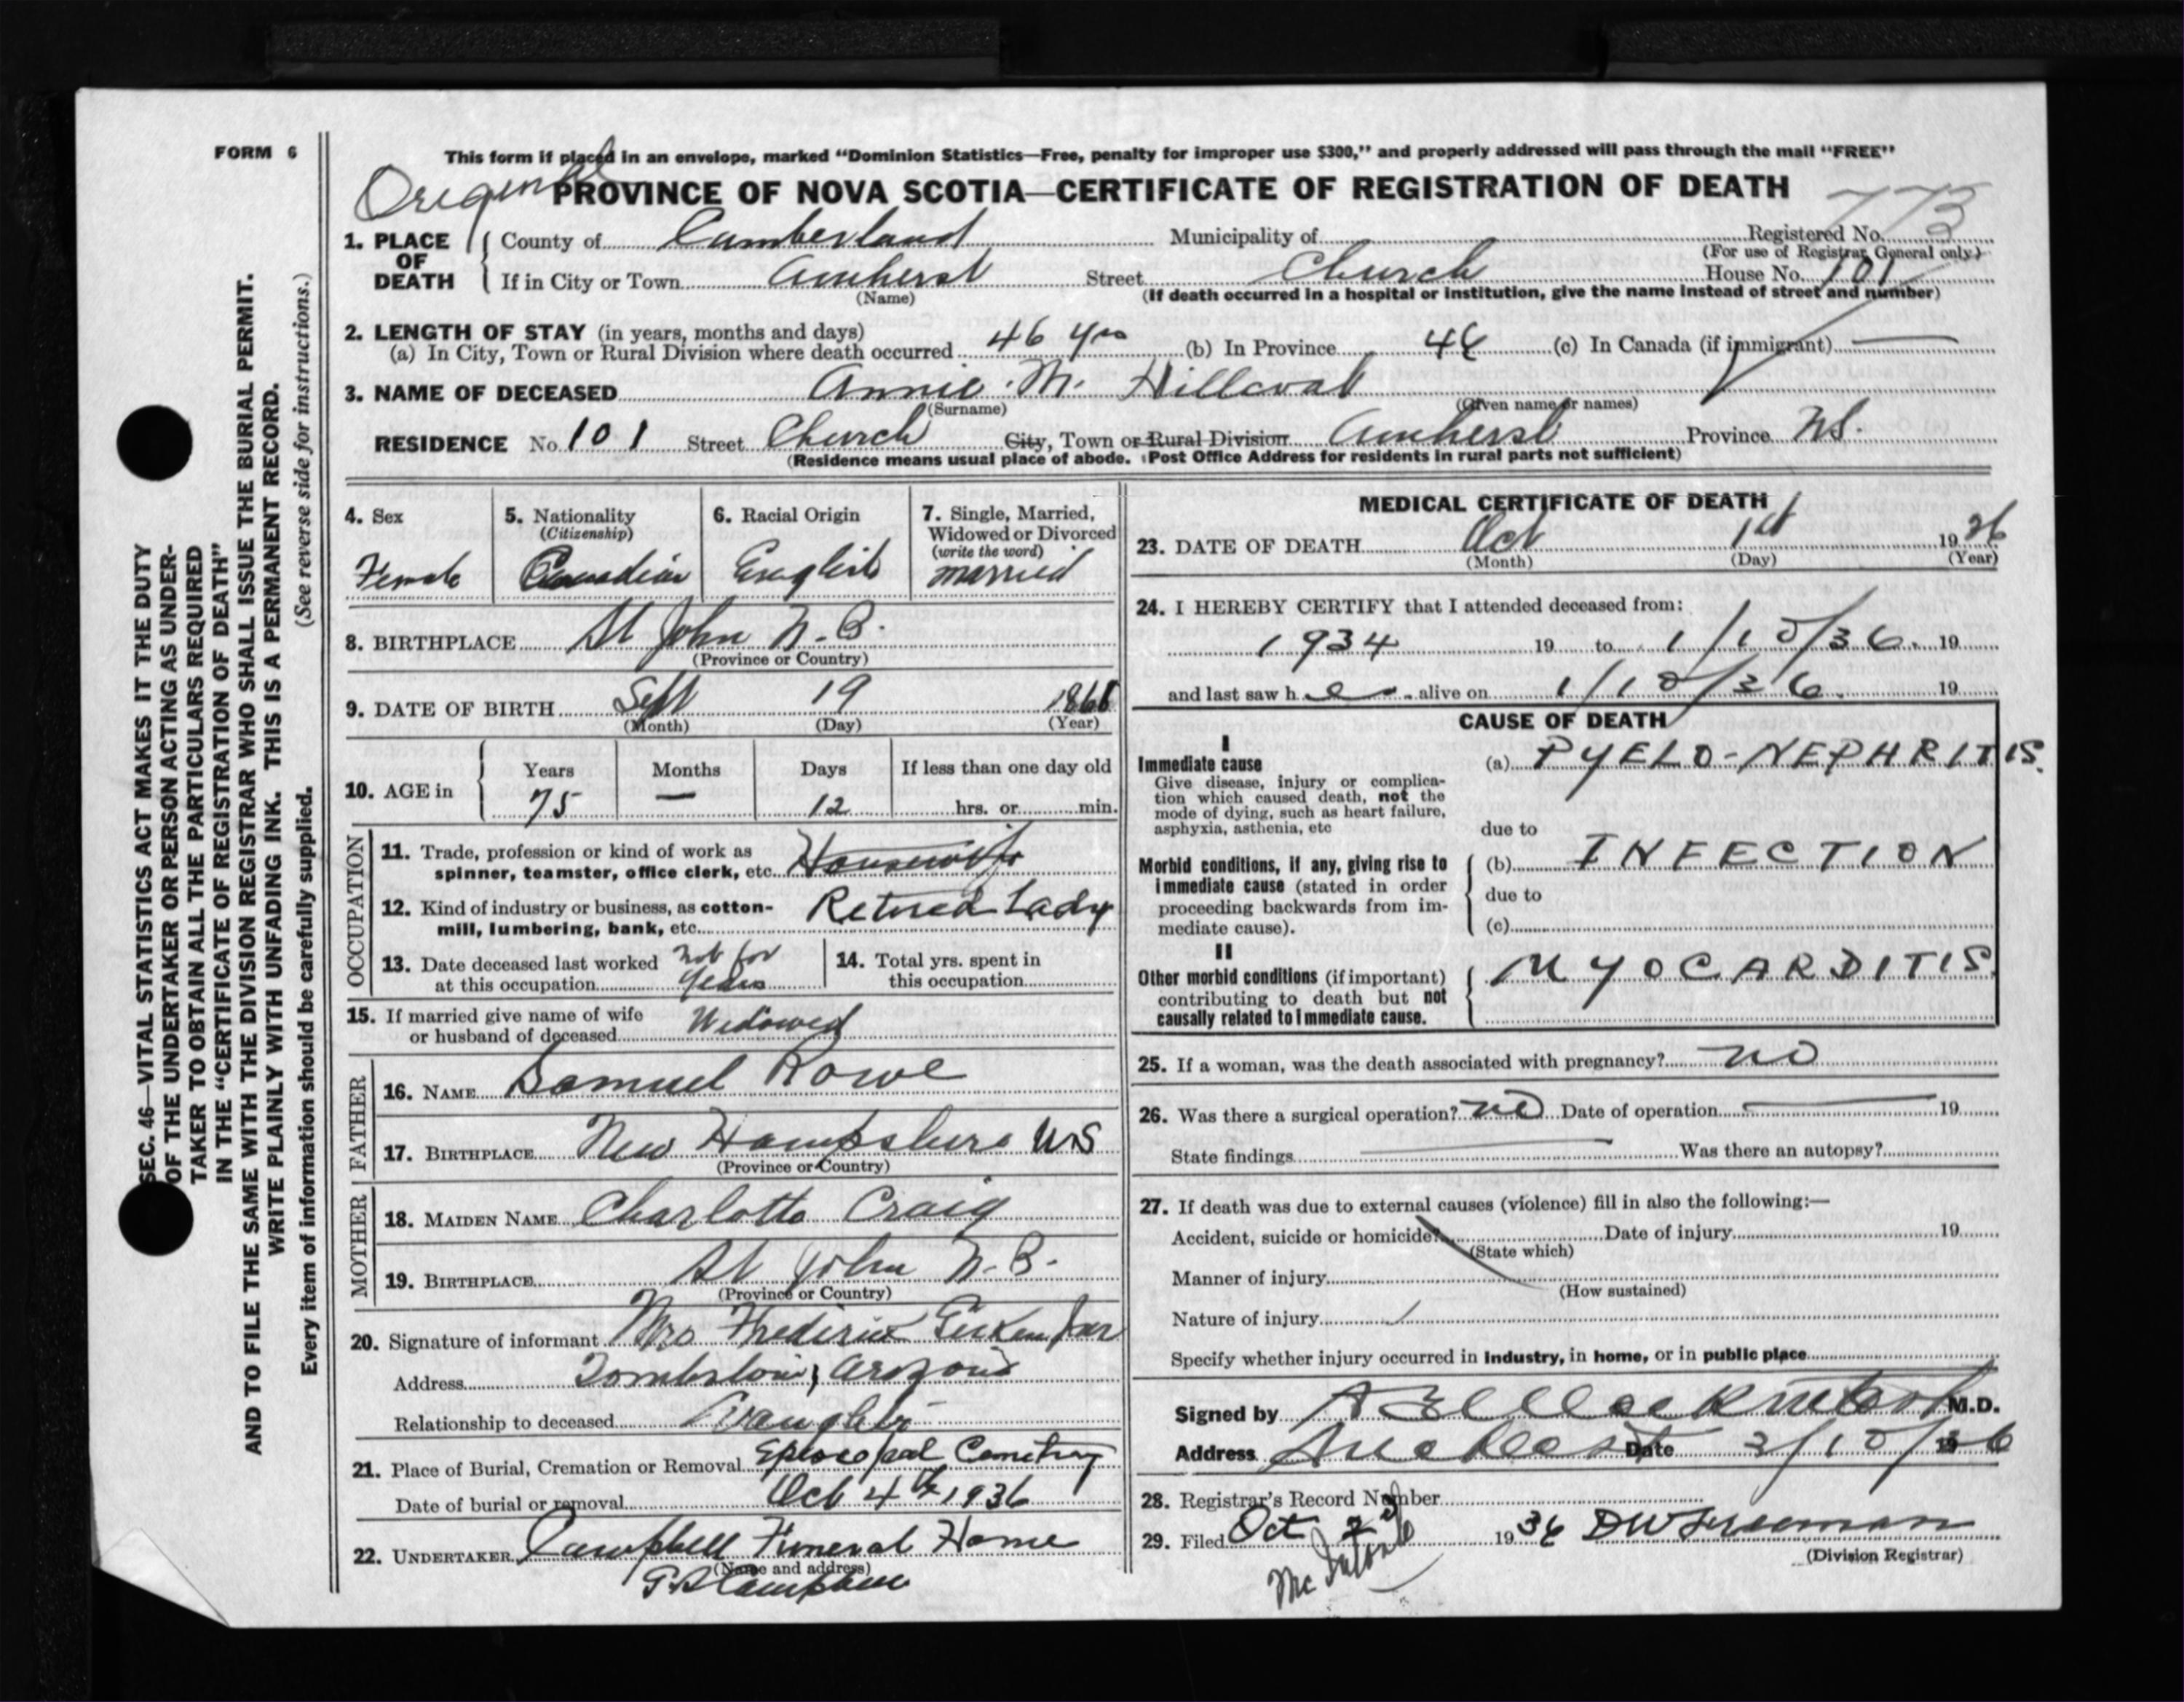 FORM 6
This form if placed in an envelope, marked "Dominion Statistics—Free, penalty for improper use $300," and properly addressed will pass through the mail "FREE"
Original
PROVINCE OF NOVA SCOTIA—CERTIFICATE OF REGISTRATION OF DEATH
773
1. PLACE OF DEATH
County of Cumberland Municipality of Registered No.
(For use of Registrar General only)
If in City or Town Amherst Street Church House No. 101
(Name) (If death occurred in a hospital or institution, give the name instead of street and number)
2. LENGTH OF STAY (in years, months and days)
(a) In City, Town or Rural Division where death occurred 46 yrs (b) In Province 46 (c) In Canada (if immigrant) —
3. NAME OF DECEASED Annie M. Hillcoat
(Surname) (Given name or names)
RESIDENCE No. 101 Street Church City, Town or Rural Division Amherst Province N.S.
(Residence means usual place of abode. Post Office Address for residents in rural parts not sufficient)
4. Sex
Female
5. Nationality
(Citizenship)
Canadian
6. Racial Origin
English
7. Single, Married,
Widowed or Divorced
(write the word)
married
8. BIRTHPLACE St John N.B.
(Province or Country)
9. DATE OF BIRTH Sept 19
(Month) (Day) (Year)
10. AGE in
Years Months Days If less than one day old
75 — 12 hrs. or min.
OCCUPATION
11. Trade, profession or kind of work as
spinner, teamster, office clerk, etc. Housewife
12. Kind of industry or business, as cotton-
mill, lumbering, bank, etc. Retired Lady
13. Date deceased last worked
at this occupation not for years
14. Total yrs. spent in
this occupation
15. If married give name of wife
or husband of deceased Widowed
FATHER
16. NAME Samuel Rowe
17. BIRTHPLACE New Hampshire U.S
(Province or Country)
MOTHER
18. MAIDEN NAME Charlotte Craig
19. BIRTHPLACE St John N.B.
(Province or Country)
20. Signature of informant Mrs Frederick
Address Tombstone, Arizona
Relationship to deceased Daughter
21. Place of Burial, Cremation or Removal Episcopal Cemetery
Date of burial or removal Oct 4th 1936
22. UNDERTAKER Campbell Funeral Home
(Name and address)
Campbell
MEDICAL CERTIFICATE OF DEATH
23. DATE OF DEATH Oct 1st 1936
(Month) (Day) (Year)
24. I HEREBY CERTIFY that I attended deceased from:
1934 19 to 1/10/36. 19
and last saw her alive on 1/10/36. 19
CAUSE OF DEATH
I
Immediate cause
Give disease, injury or complica-
tion which caused death, not the
mode of dying, such as heart failure,
asphyxia, asthenia, etc
(a) PYELO-NEPHRITIS.
due to
Morbid conditions, if any, giving rise to
immediate cause (stated in order
proceeding backwards from im-
mediate cause).
(b) INFECTION
due to
(c)
II
Other morbid conditions (if important)
contributing to death but not
causally related to immediate cause.
MYOCARDITIS
25. If a woman, was the death associated with pregnancy? no
26. Was there a surgical operation? no Date of operation 19
State findings Was there an autopsy?
27. If death was due to external causes (violence) fill in also the following:—
Accident, suicide or homicide? Date of injury 19
(State which)
Manner of injury
(How sustained)
Nature of injury
Specify whether injury occurred in industry, in home, or in public place
Signed by M.D.
Address Amherst Date 2/10/36
28. Registrar's Record Number
29. Filed Oct 2d 1936 DW Freeman
(Division Registrar)
SEC. 46—VITAL STATISTICS ACT MAKES IT THE DUTY
OF THE UNDERTAKER OR PERSON ACTING AS UNDER-
TAKER TO OBTAIN ALL THE PARTICULARS REQUIRED
IN THE "CERTIFICATE OF REGISTRATION OF DEATH"
AND TO FILE THE SAME WITH THE DIVISION REGISTRAR WHO SHALL ISSUE THE BURIAL PERMIT.
WRITE PLAINLY WITH UNFADING INK. THIS IS A PERMANENT RECORD.
Every item of information should be carefully supplied. (See reverse side for instructions.)